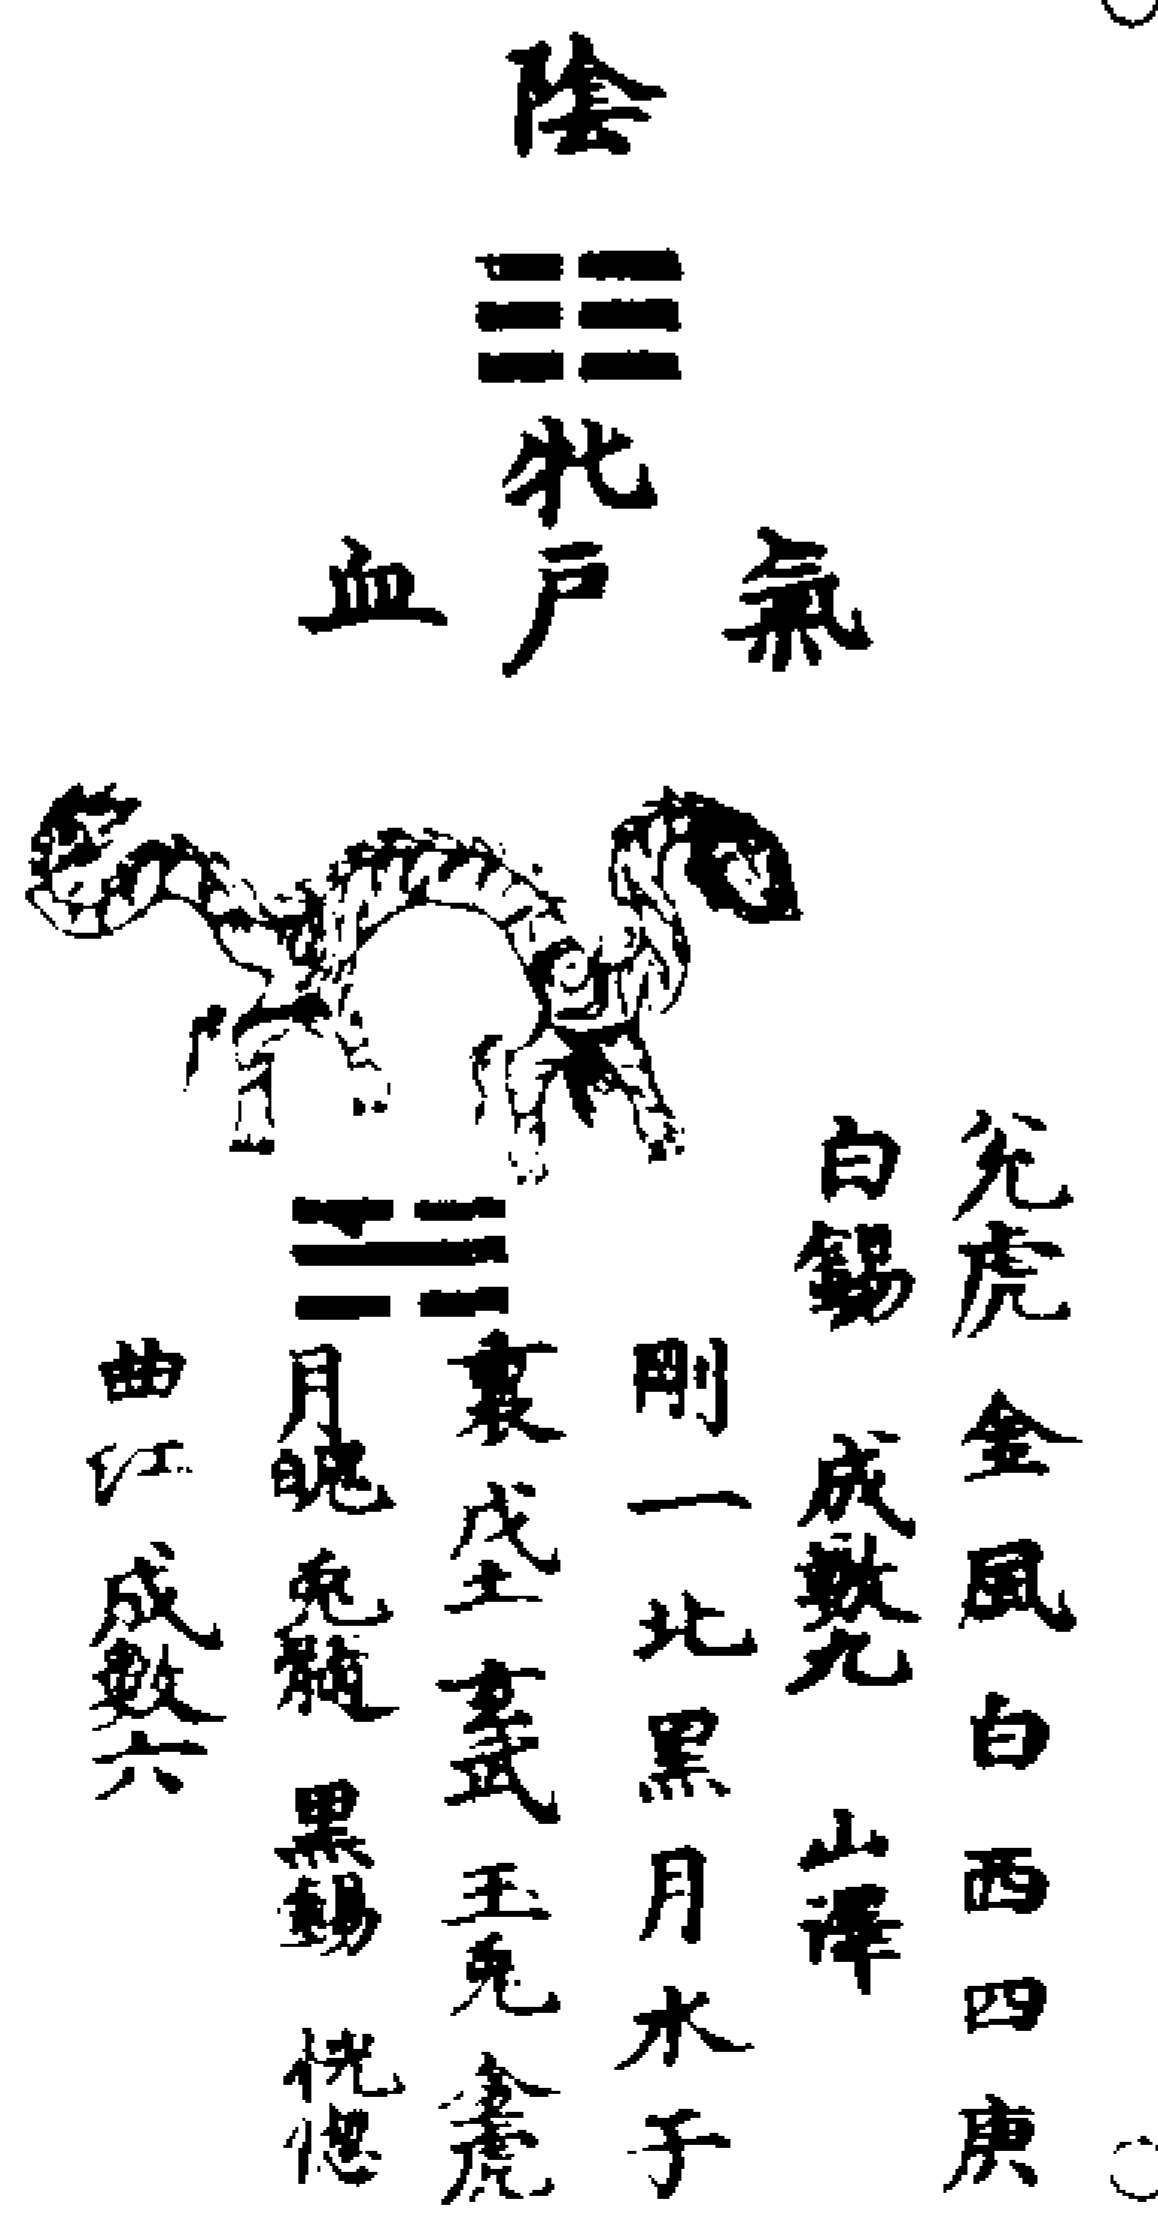 陰
牝戶
氣
血
兌虎 金 風 白 西 四 庚
白錫 成數九 山澤
剛 一 北 黑 月 水 子
裏 戊土 玄武 玉兔 金虎
月魄 兔髓 黑錫 恍惚
曲江 成數六